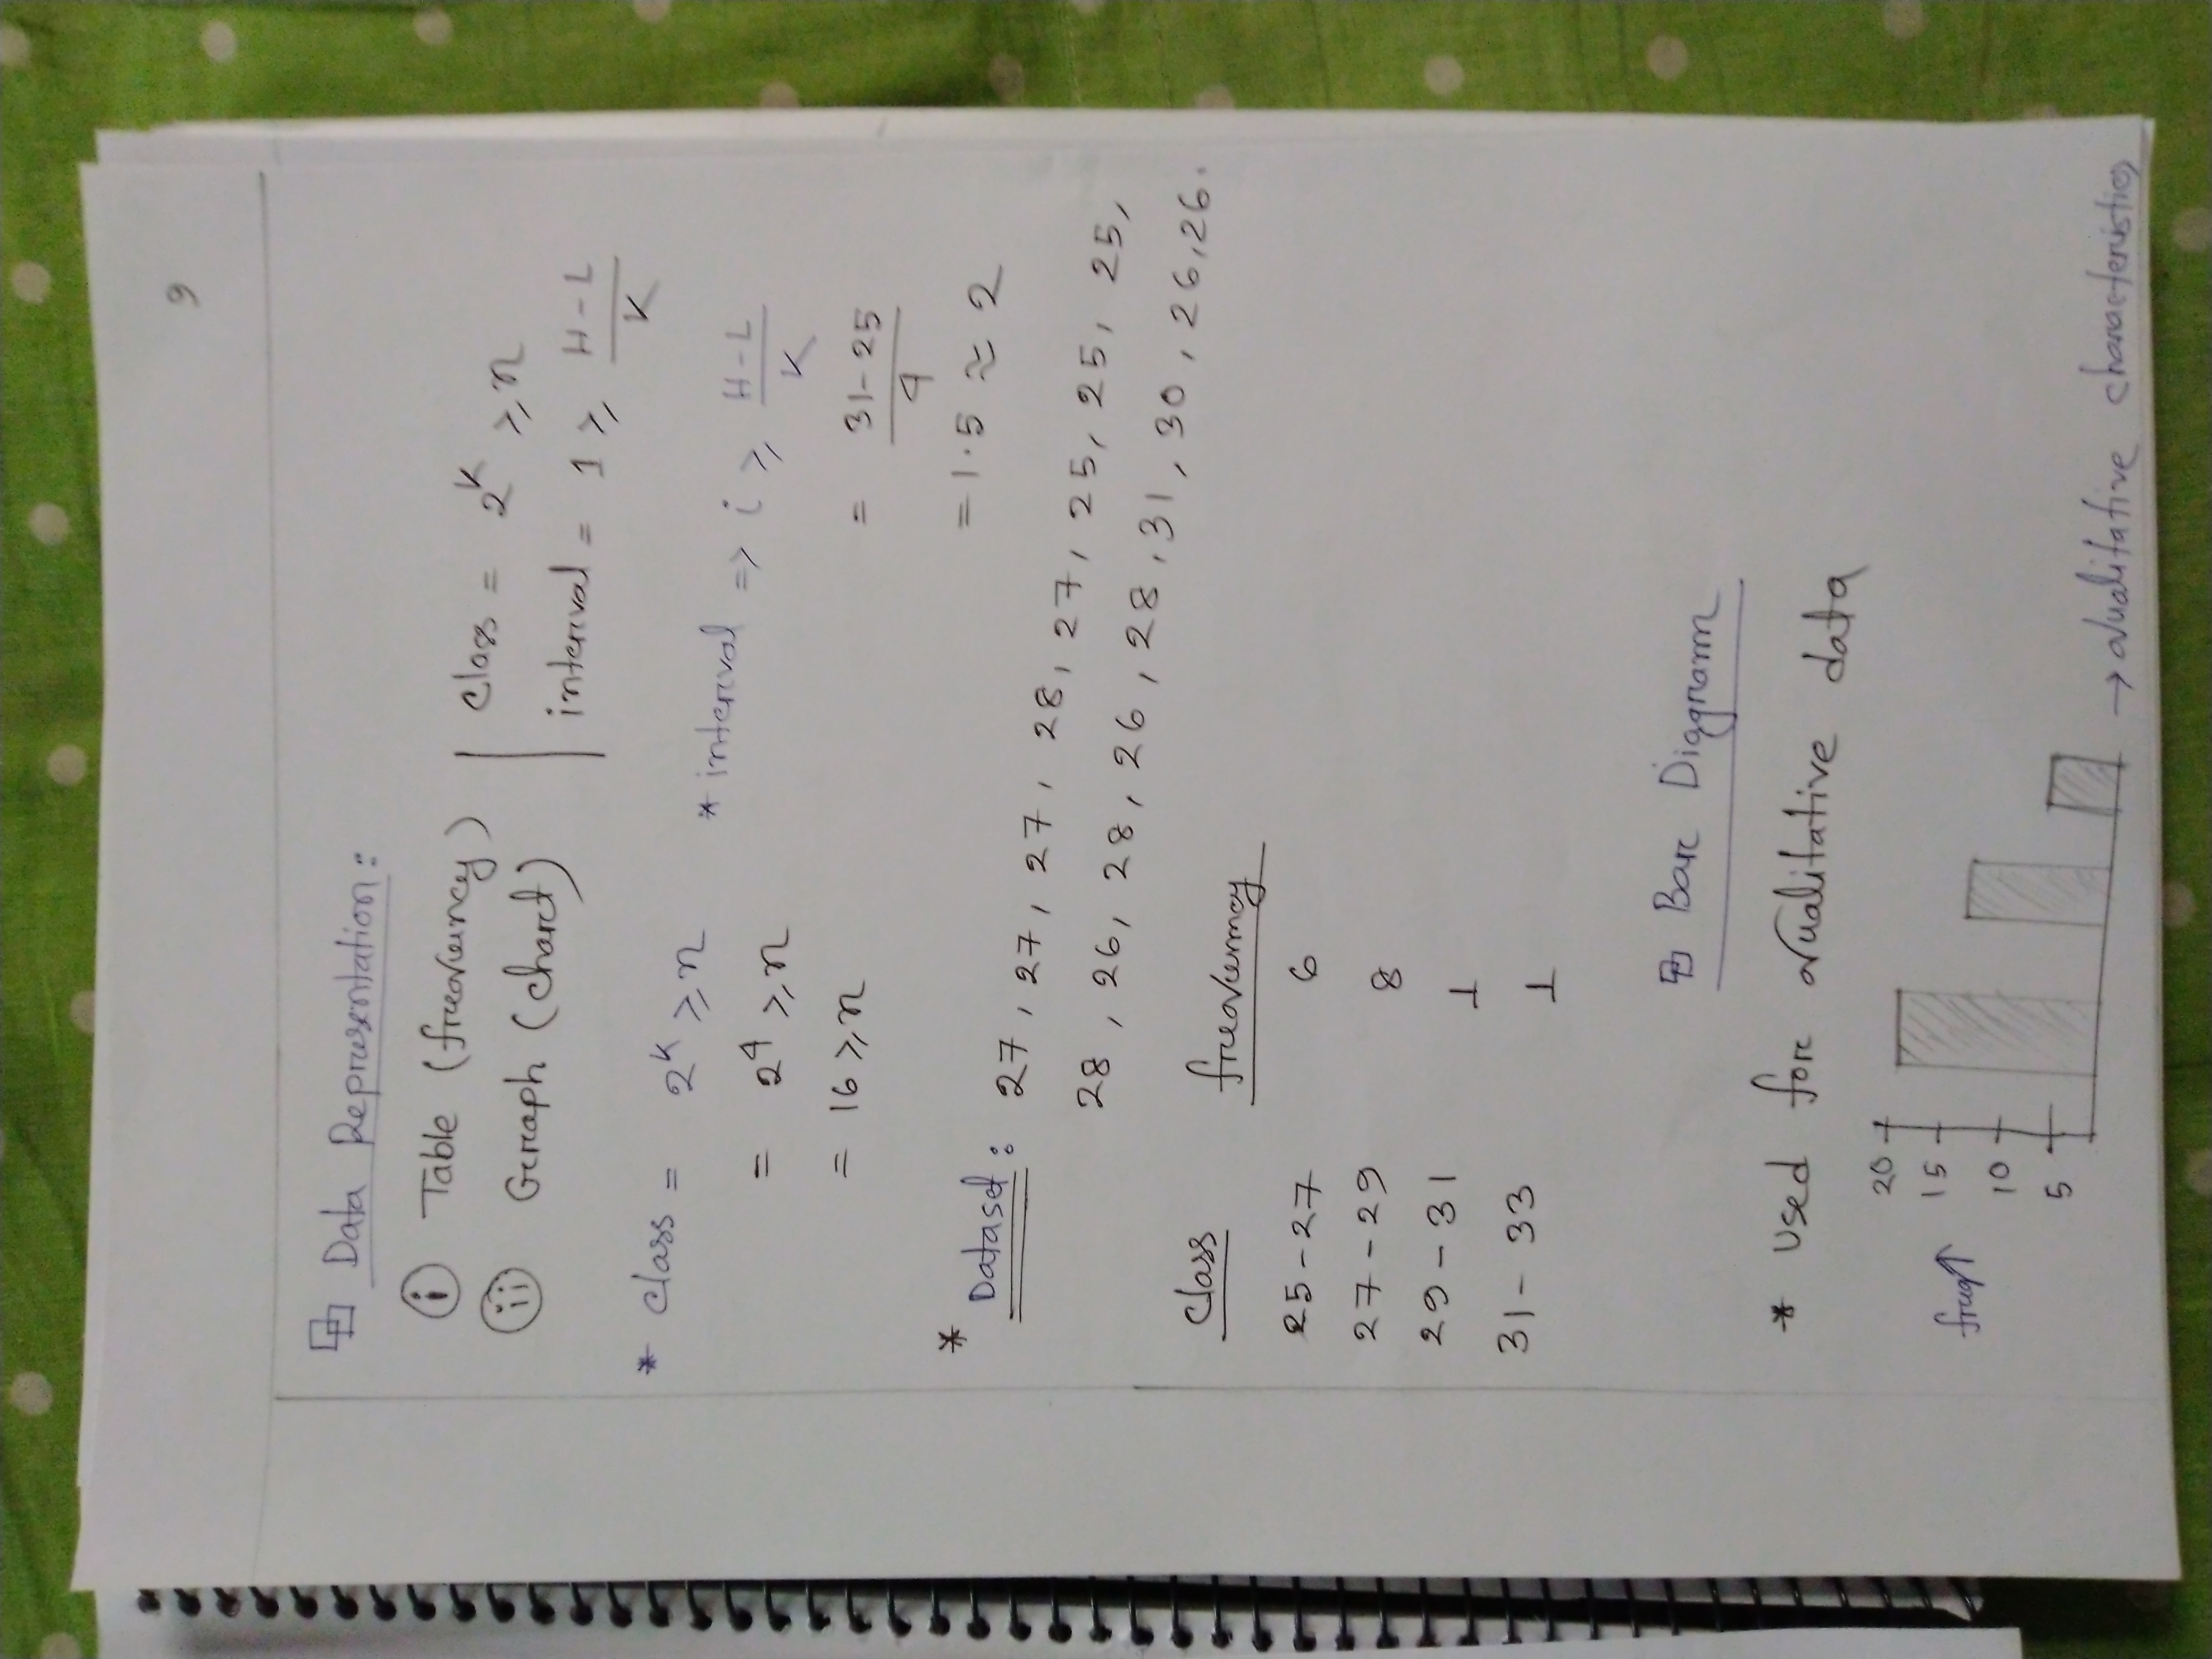 9
Data Representation:
i Table (frequency) | class = 2^k ≥ n
ii Graph (chart) | interval = 1 ≥ H-L/K
* class = 2^k ≥ n
* interval => i ≥ H-L/K
= 2^4 ≥ n
= 31-25/4
= 16 ≥ n
= 1.5 ≈ 2
* Dataset: 27, 27, 27, 28, 27, 25, 25, 25,
28, 26, 28, 26, 28, 31, 30, 26, 26.
class frequency
25-27 6
27-29 8
29-31 1
31-33 1
Bar Diagram
* Used for qualitative data
freq↑
20
15
10
5
→ qualitative characteristics